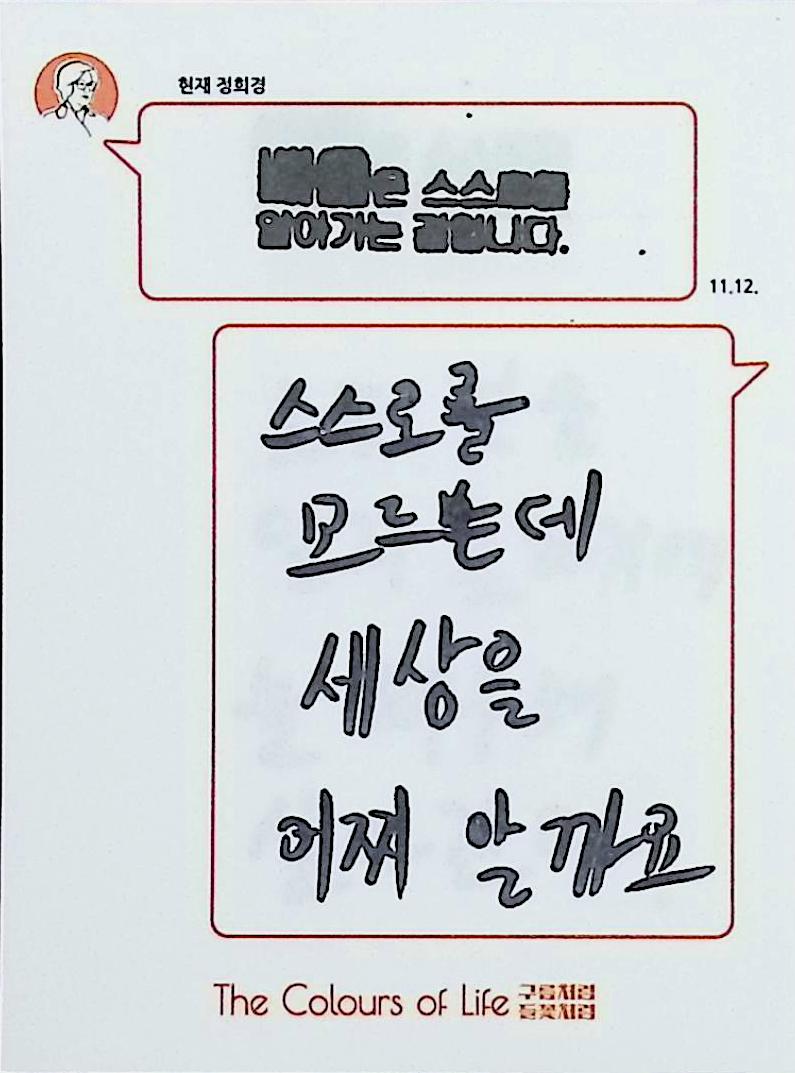 현재 정희경
배움은 스스로를
알아가는 길입니다.
11.12.
스스로를
모르는데
세상을
어찌 알까요
The Colours of Life 구름처럼
들꽃처럼